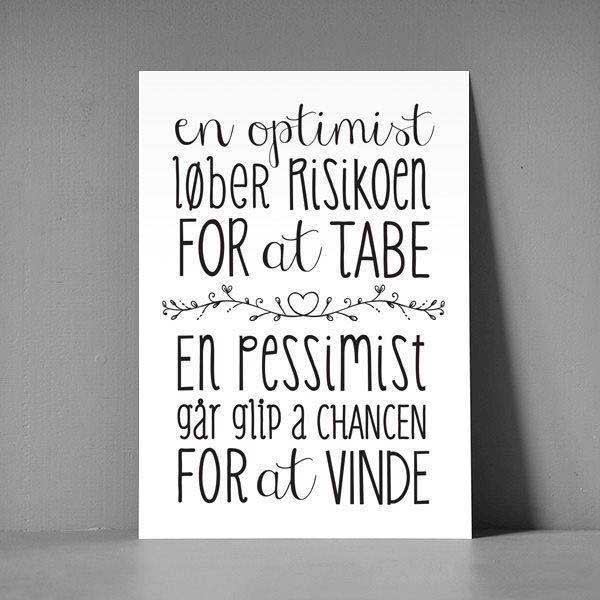 en optimist
løber Risikoen
FOR at TABE
En Pessimist
går glip a CHANCEN
FOR at VINDE